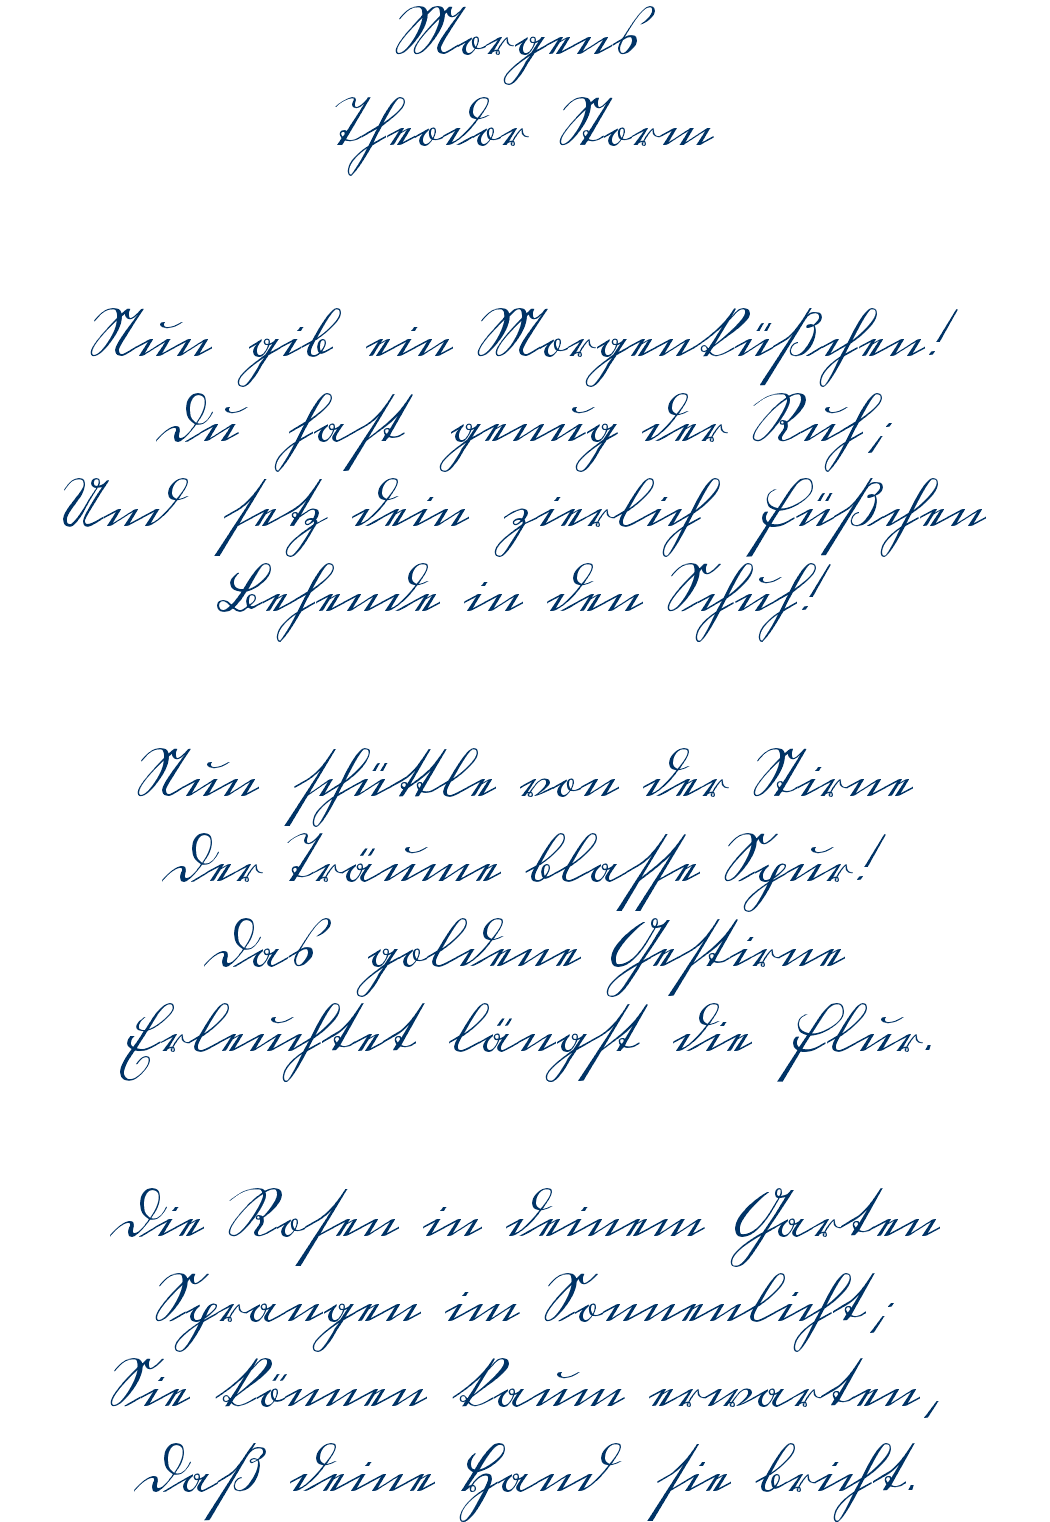 Morgens
Theodor Storm
Nun gib ein Morgenküßchen!
Du hast genug der Ruh;
Und setz dein zierlich Füßchen
Behende in den Schuh!
Nun schüttle von der Stirne
Der Träume blasse Spur!
Das goldene Gestirne
Erleuchtet längst die Flur.
Die Rosen in deinem Garten
Sprangen im Sonnenlicht;
Sie können kaum erwarten,
Daß deine Hand sie bricht.